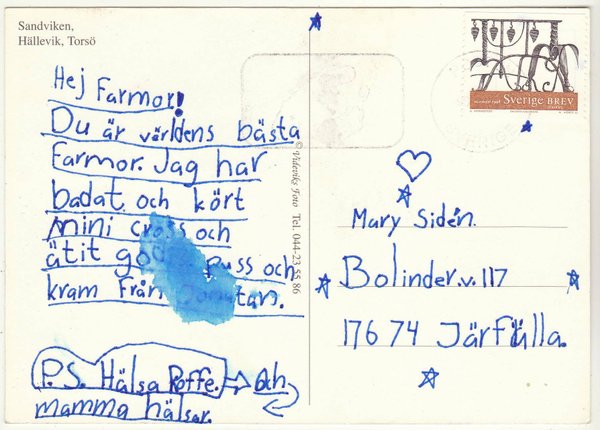 Sandviken,
Hällevik, Torsö
Hej Farmor!
Du är världens bästa
Farmor. Jag har
badat och kört
mini cross och
ätit godis puss och
kram från Jonatan.
P.S. Hälsa Roffe. → och
mamma hälsar.
© Videviks Foto Tel. 044-23 55 86
Sverige BREV
Mary Sidén.
Bolinder.v. 117
176 74 Järfälla.